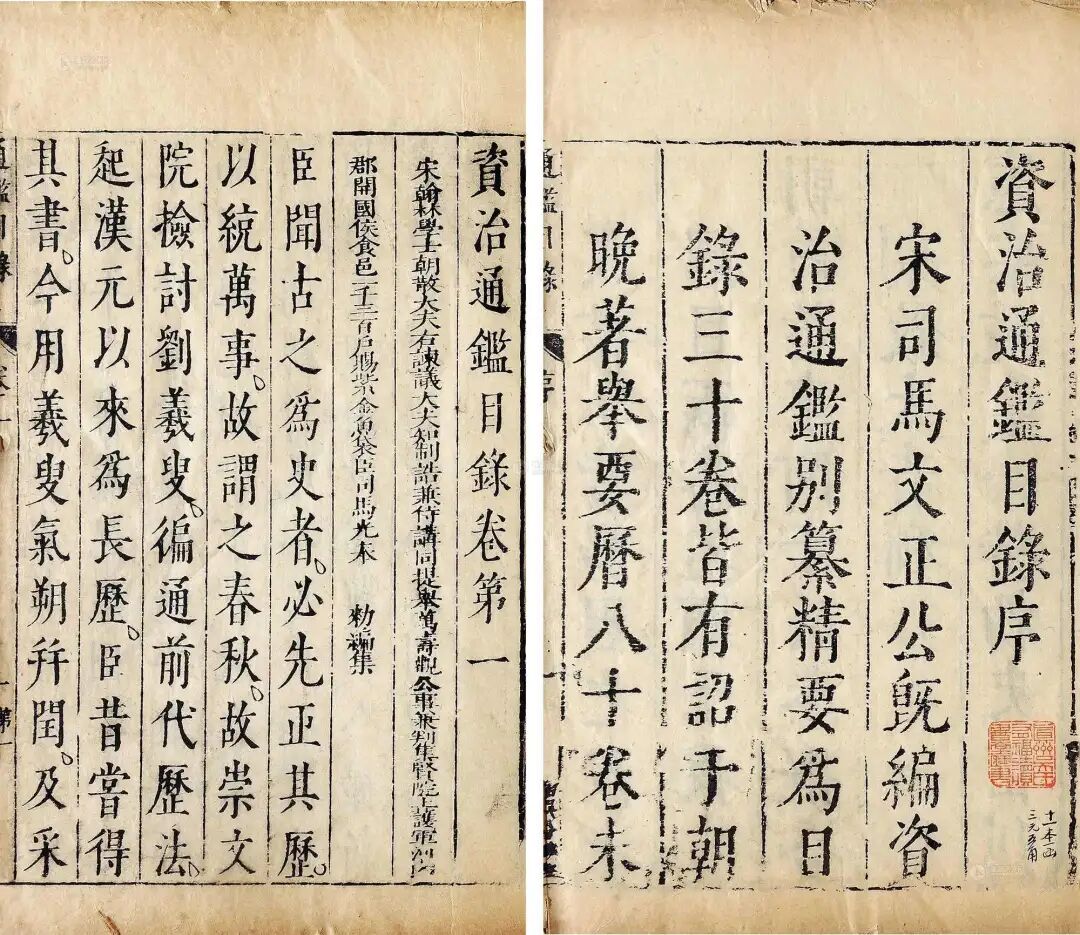 資治通鑑目錄序
宋司馬文正公旣編資
治通鑑別纂精要爲目
錄三十卷皆有詔于朝
晚著舉要曆八十卷未
通鑑目錄 序
三元五角
資治通鑑目錄卷第一
宋翰林學士朝散大夫右諫議大夫知制誥兼侍講同提舉萬壽觀公事兼判集賢院上護軍河內
郡開國侯食邑一千三百戶賜紫金魚袋臣司馬光奉 勑編集
臣聞古之爲史者。必先正其歷。
以統萬事。故謂之春秋。故崇文
院撿討劉羲叟。徧通前代歷法。
起漢元以來爲長歷。臣昔嘗得
其書。今用羲叟氣朔幷閏。及采
通鑑目錄 卷一 第一